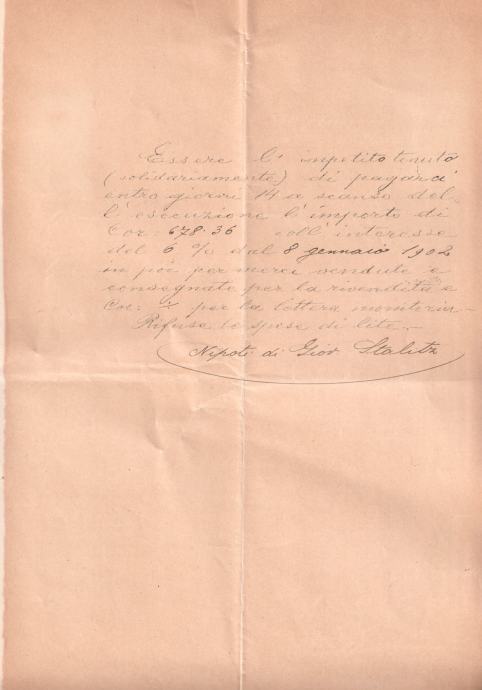 Essere l' impetito tenuto
(solidariamente) di pagarci
entro giorni 14 a scanso del-
l' esecuzione l' importo di
Cor: 678.36 coll' interesse
del 6 % dal 8 gennaio 1902
in poi per merci vendute e
consegnate per la rivendita e
Cor: per la lettera monitoria.-
Rifuse le spese di lite.-
Nipoti di Giov Stalitz